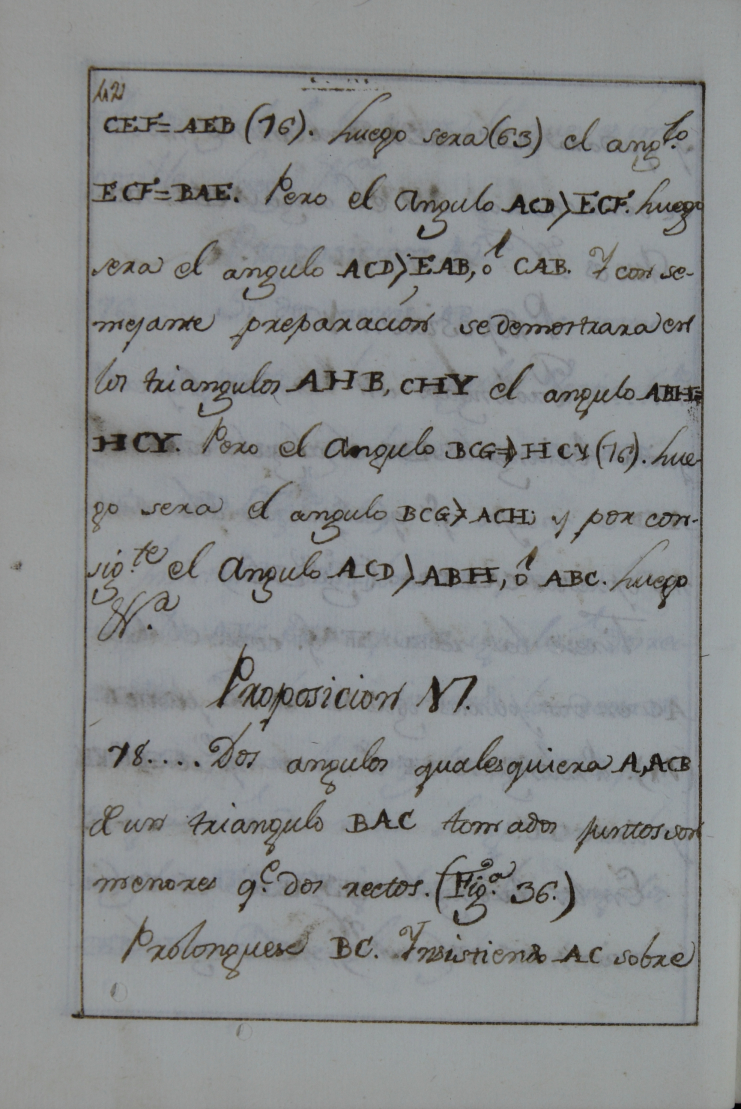 42
CEF=AEB (76). Luego sera (63) el ang.lo
ECF=BAE. Pero el Angulo ACD>ECF. Luego
sera el angulo ACD>EAB, ó CAB. Y con se-
mejante preparación se demostrara en
los triangulos AHB, CHY el angulo ABH=
HCY. Pero el Angulo BCG>HCY (76). Lue-
go sera el angulo BCG>ACH; y por con-
sig.te el Angulo ACD>ABH, ó ABC. Luego
&.a
Proposicion VI.
78.... Dos angulos qualesquiera A, ACB
de un triangulo BAC tomados juntos son
menores q.e dos rectos. (Fig.a 36.)
Prolonguese BC. Ynsistiendo AC sobre